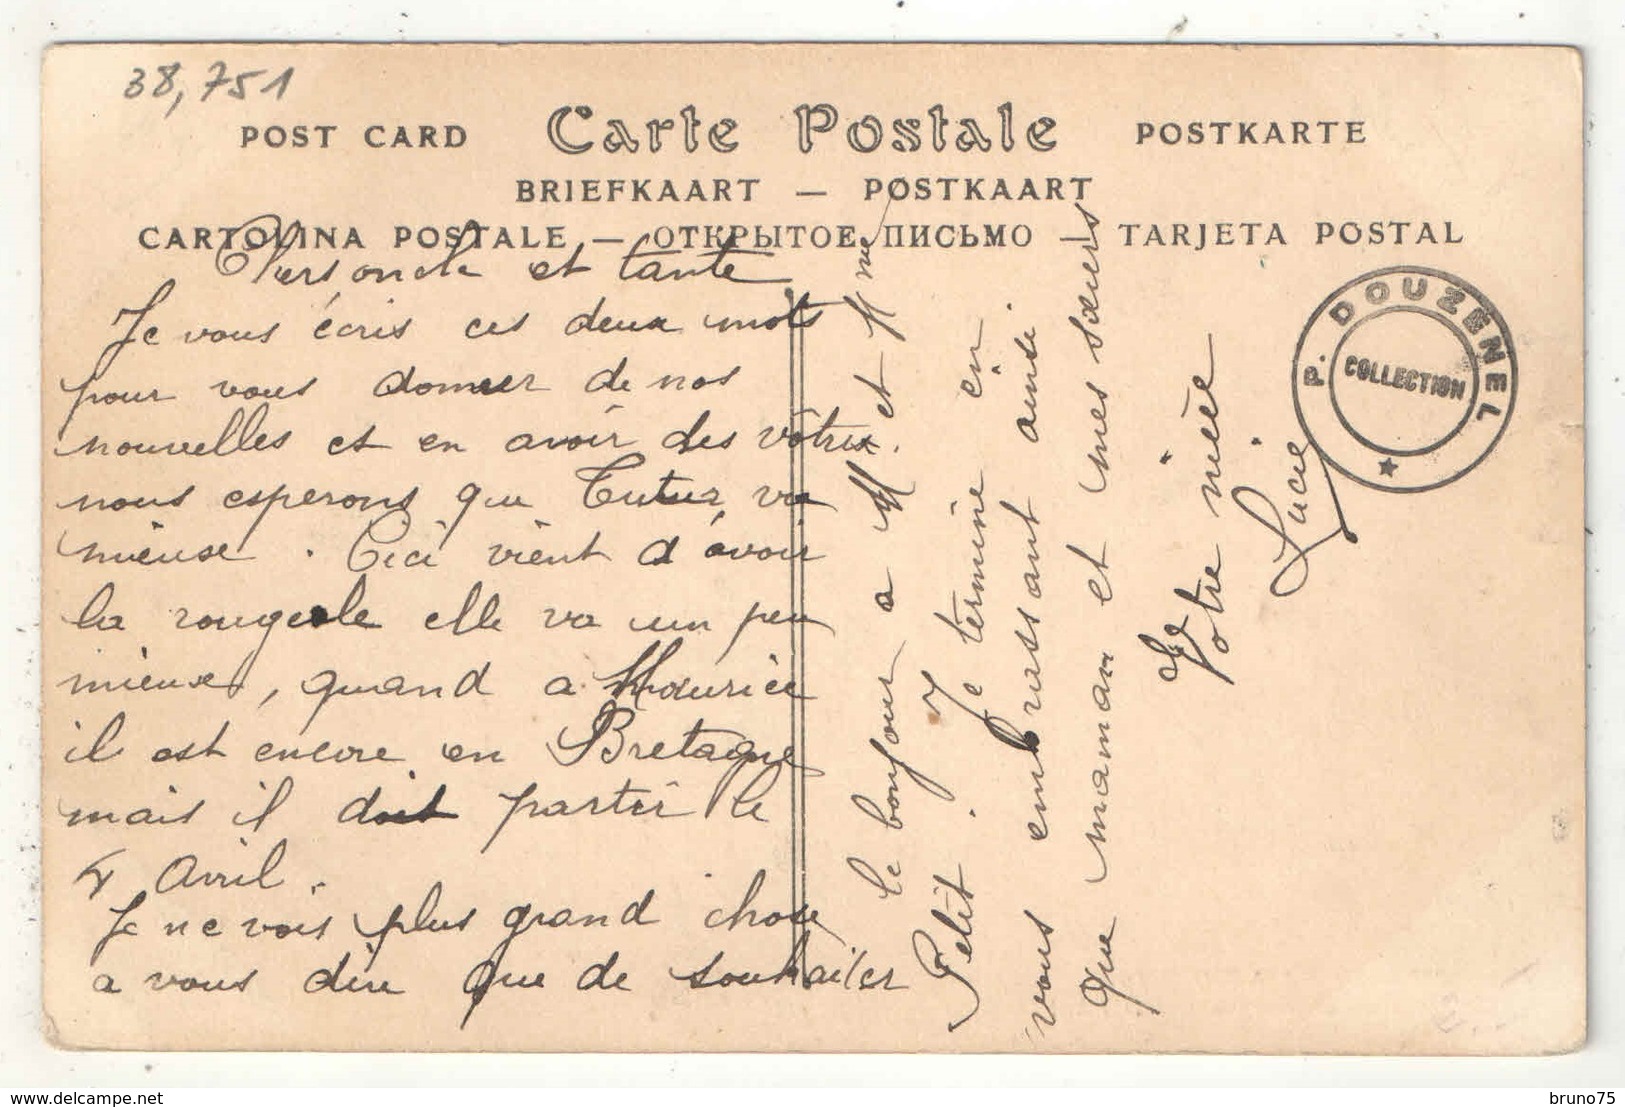 38,751
POST CARD Carte Postale POSTKARTE
BRIEFKAART — POSTKAART
CARTOLINA POSTALE — ОТКРЫТОЕ ПИСЬМО — TARJETA POSTAL
Chers oncle et tante
Je vous écris ces deux mots
pour vous donner de nos
nouvelles et en avoir des vôtres.
nous esperons que Tutur va
mieuse. Cici vient d'avoir
la rougeole elle va un peu
mieuse, quand a Maurice
il est encore en Bretagne
mais il doit partir le
4 Avril.
Je ne vois plus grand chose
a vous dire que de souhaiter
le bonjour a M et Mme
Petit. Je termine en
vous embrassant ainsi
que maman et mes sœurs
Votre nièce
Lucie
P. DOUZENEL
COLLECTION
© delcampe.net
bruno75